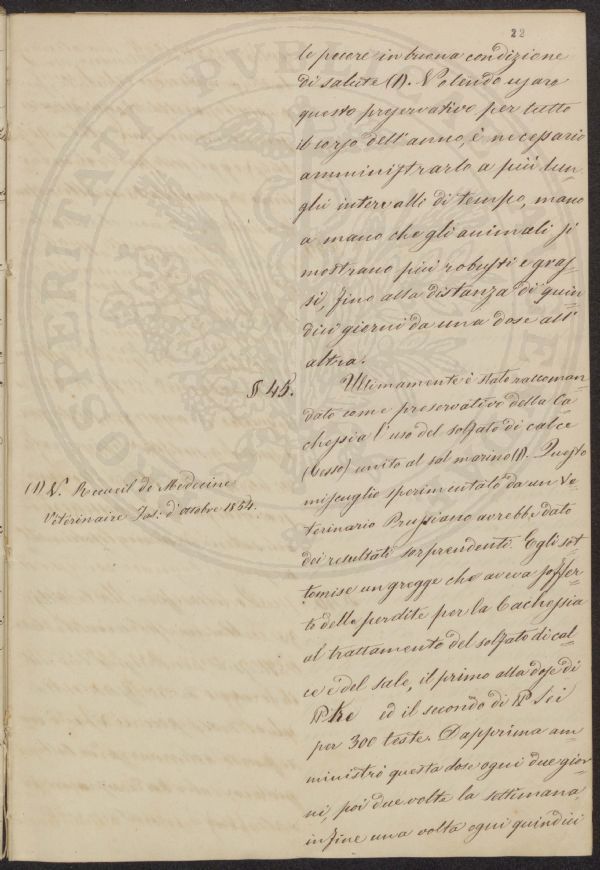 22
le pecore in buona condizione
di salute (1). Volendo usare
questo preservativo per tutto
il corso dell'anno, è necessario
amministrarlo a più lun-
ghi intervalli di tempo, mano
a mano che gli animali si
mostrano più robusti e gras-
si, fino alla distanza di quin-
dici giorni da una dose all'
altra.
§ 45. Ultimamente è stato raccoman-
dato come preservativo della Ca-
chessia l'uso del solfato di calce
(Gesso) unito al sal marino (1). Questo
miscuglio sperimentato da un Ve-
terinario Prussiano avrebbe dato
dei resultati sorprendenti. Egli sot-
tomise un gregge che aveva soffer-
to delle perdite per la Cachessia
al trattamento del solfato di cal-
ce e del sale, il primo alla dose di
ed il secondo di sei
per 300 teste. Dapprima am-
ministrò questa dose ogni due gior-
ni, poi due volte la settimana,
infine una volta ogni quindici
(1) V. Recueil de Medecine
Vétérinaire Fas: d'ottobre 1854.
PROSPERITATI PUBL